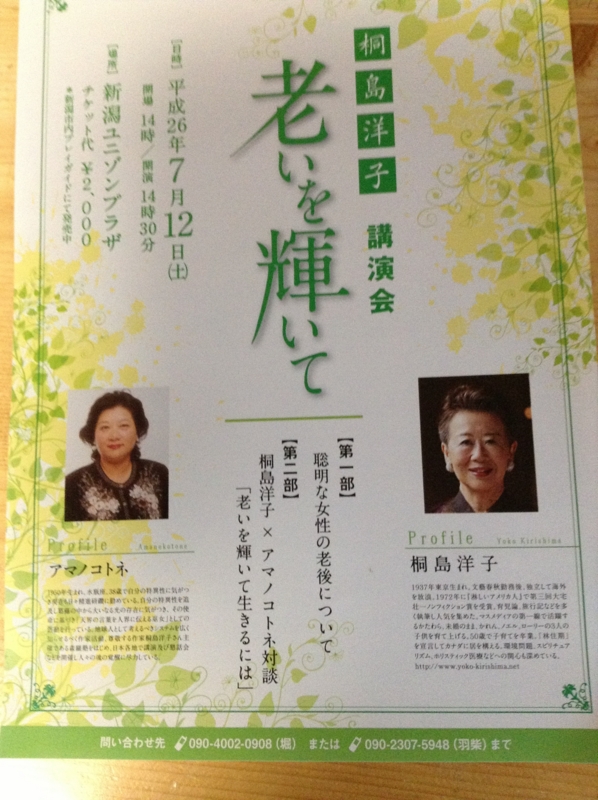 桐島洋子 講演会
老いを輝いて
【日時】平成26年7月12日(土)
開場 14時/開演 14時30分
【場所】新潟ユニゾンプラザ
チケット代 ¥2,000
*新潟市内プレイガイドにて発売中
【第一部】
聡明な女性の老後について
【第二部】
桐島洋子×アマノコトネ対談
「老いを輝いて生きるには」
Profile Yoko Kirishima
桐島洋子
1937年東京生まれ。文藝春秋勤務後、独立して海外
を放浪。1972年に『淋しいアメリカ人』で第三回大宅
壮一ノンフィクション賞を受賞。育児論、旅行記などを多
く執筆し人気を集めた。マスメディアの第一線で活躍す
るかたわら、未婚のまま、かれん、ノエル、ローランドの3人の
子供を育て上げる。50歳で子育てを卒業、「林住期」
を宣言してカナダに居を構える。環境問題、スピリチュア
リズム、ホリスティック医療などへの関心も深めている。
http://www.yoko-kirishima.net
Profile Amanokotone
アマノコトネ
問い合わせ先 090-4002-0908(堀) または 090-2307-5948(羽柴)まで